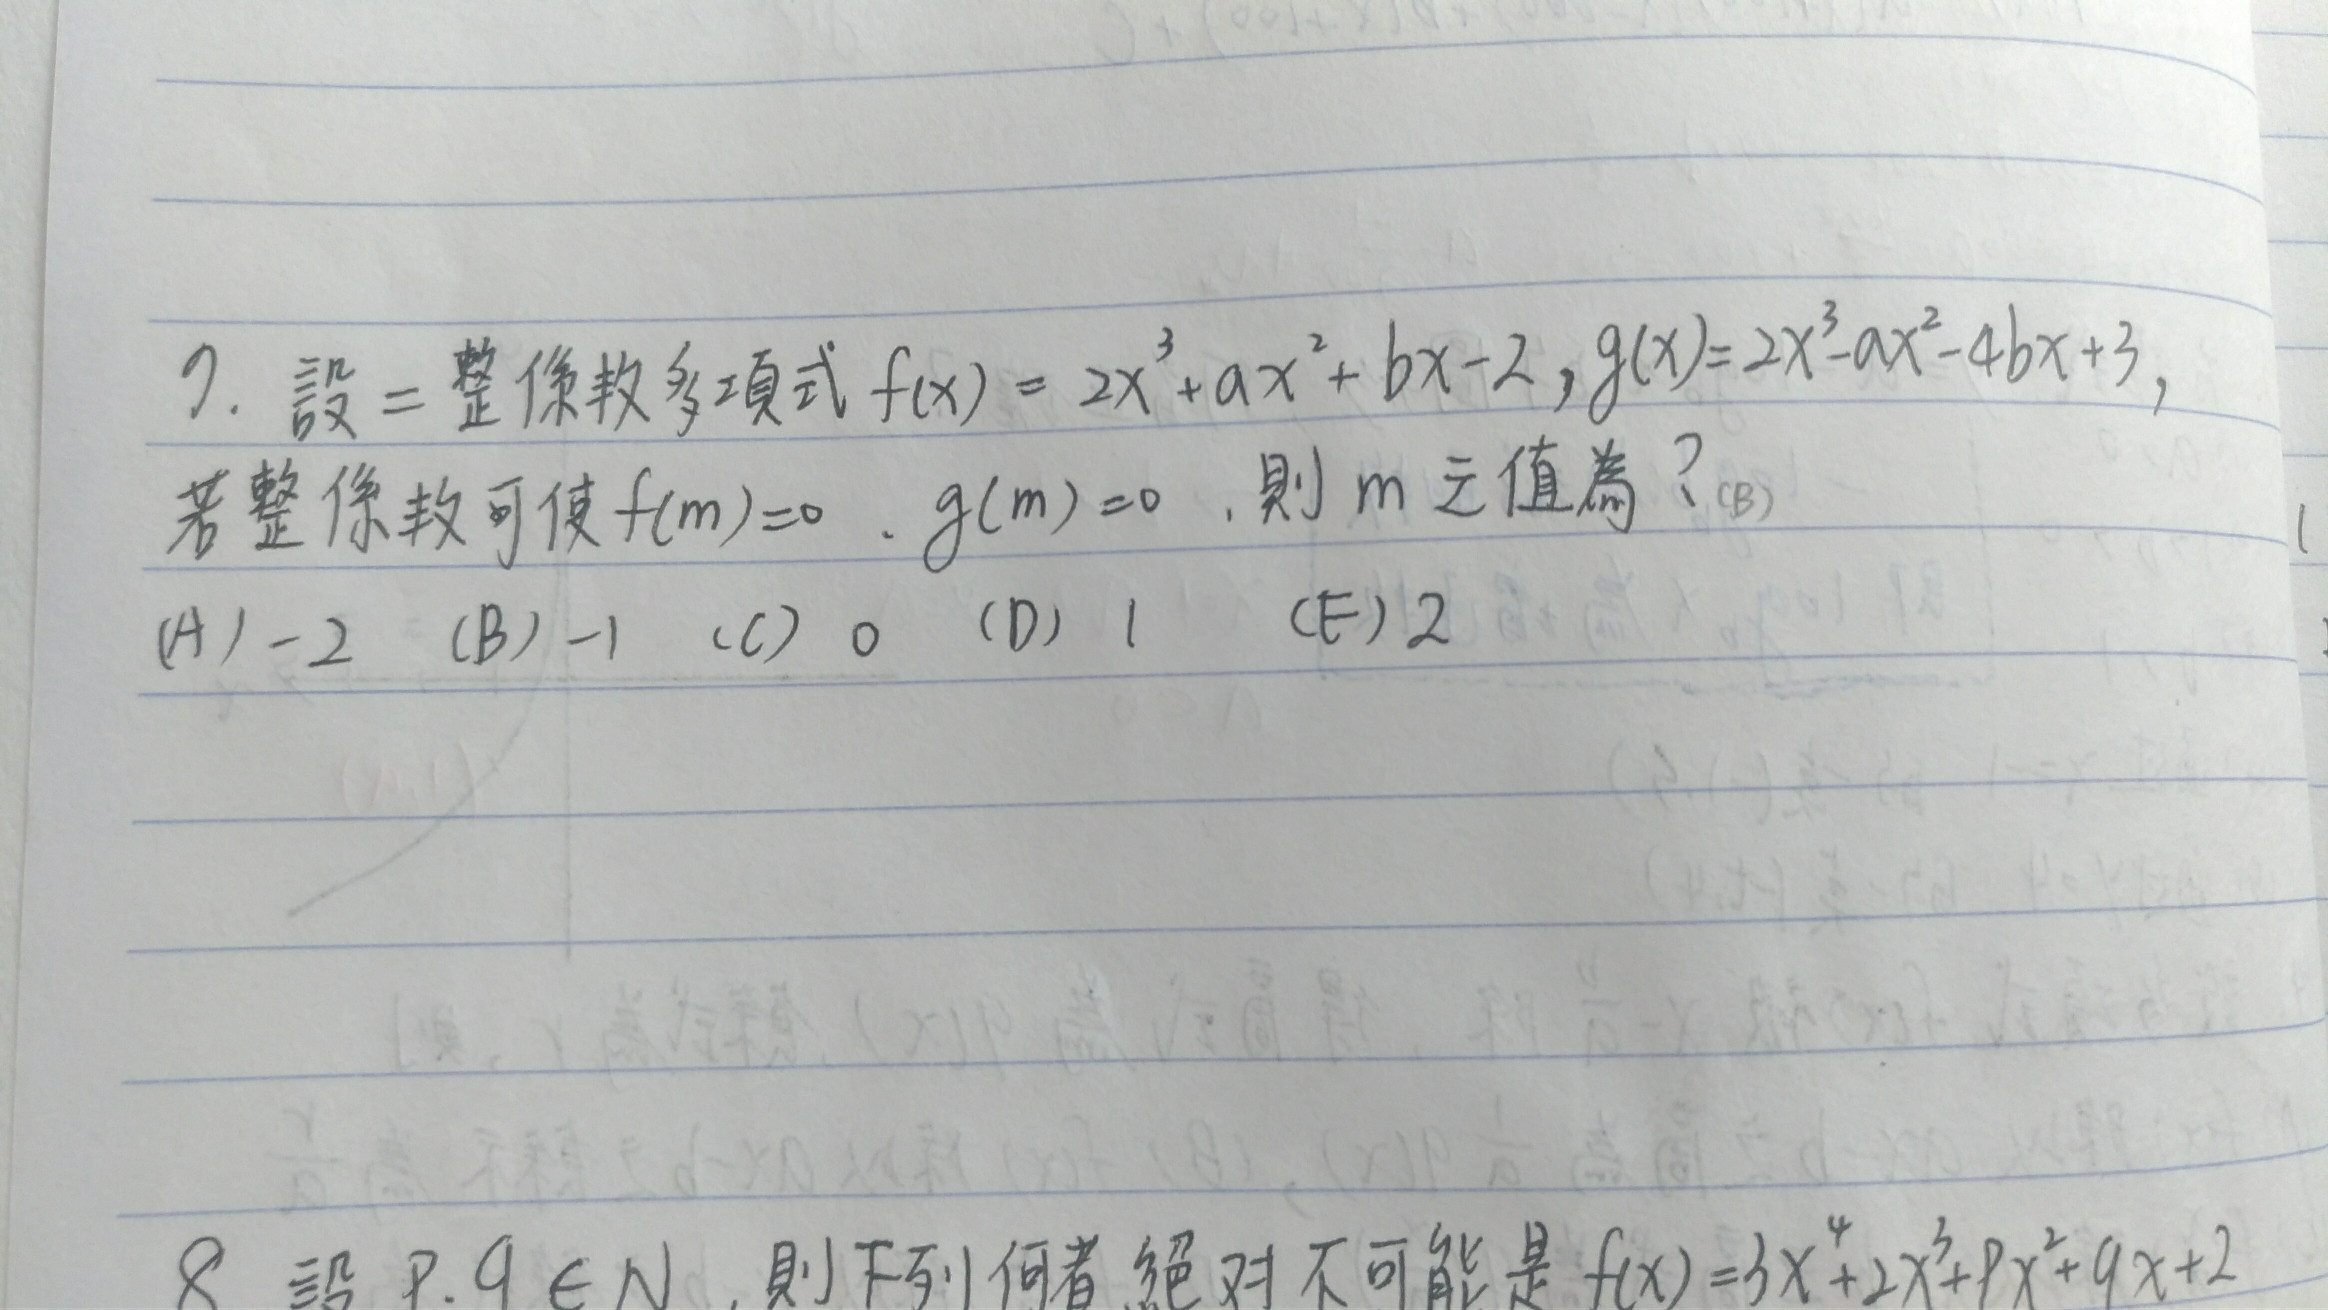 7. 設二整係数多項式 f(x) = 2x³+ax²+bx-2, g(x)=2x³-ax²-4bx+3,
若整係数可使f(m)=0 . g(m)=0 , 則 m 之值為? (B)
(A) -2 (B) -1 (C) 0 (D) 1 (E) 2
8 設 P. q ∈ N , 則下列何者絕对不可能是 f(x)=3x⁴+2x³+Px²+qx+2